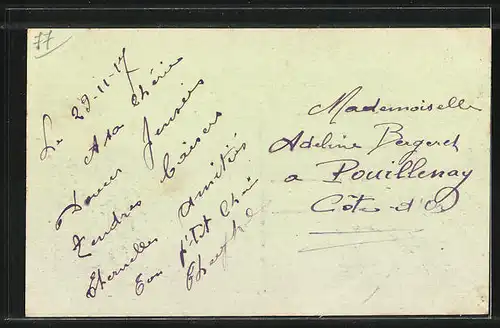 77
Le 29-11-17
Ma Chérie
Douces Pensées
Tendres baisers
Eternelles Amitiés
Ton p'tit
Mademoiselle
Adeline Bergeret
a Pouillenay
Côte d'Or